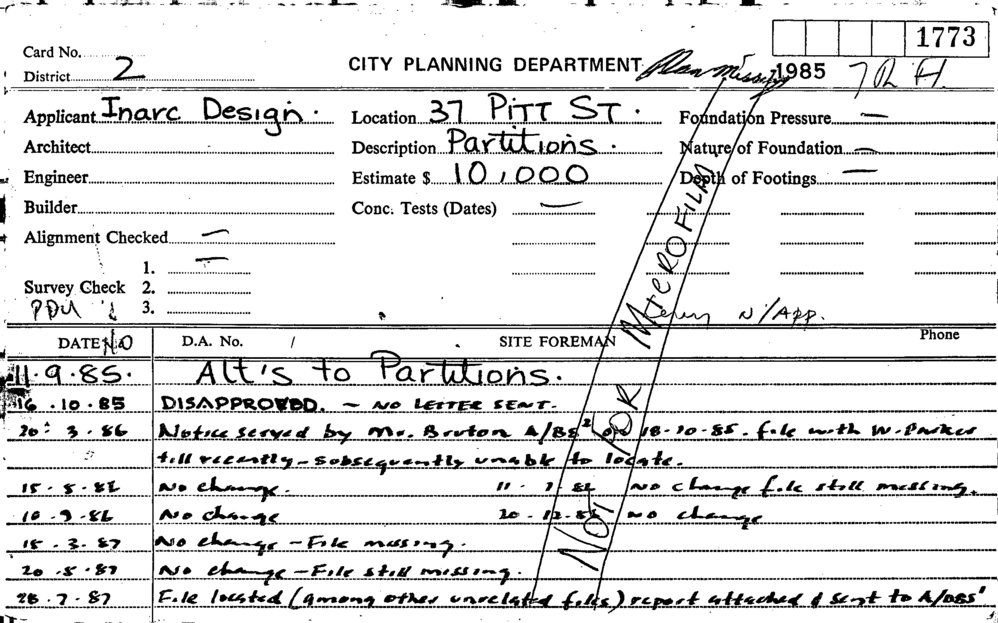 1773
Card No.
District 2
CITY PLANNING DEPARTMENT Plan Missing 1985 7
Applicant Inarc Design. Location 37 PITT ST. Foundation Pressure —
Architect Description Partitions. Nature of Foundation —
Engineer Estimate $ 10,000 Depth of Footings —
Builder Conc. Tests (Dates) —
Alignment Checked —
1. —
Survey Check 2.
3. N/App.
NOT FOR MICROFILM
DATE NO D.A. No. / SITE FOREMAN Phone
11.9.85. Alt's to Partitions.
16.10.85 DISAPPROVED. – NO LETTER SENT.
20.3.86 Notice served by Mr. Bruton A/BS² on 18-10-85. file with W. Parker
till recently – subsequently unable to locate.
15.5.86 No change. 11.7.86 No change file still missing.
10.9.86 No change 20.12.86 No change
15.3.87 No change – File missing.
20.5.87 No change – File still missing.
28.7.87 File located (among other unrelated files) report attached & sent to A/DBS'